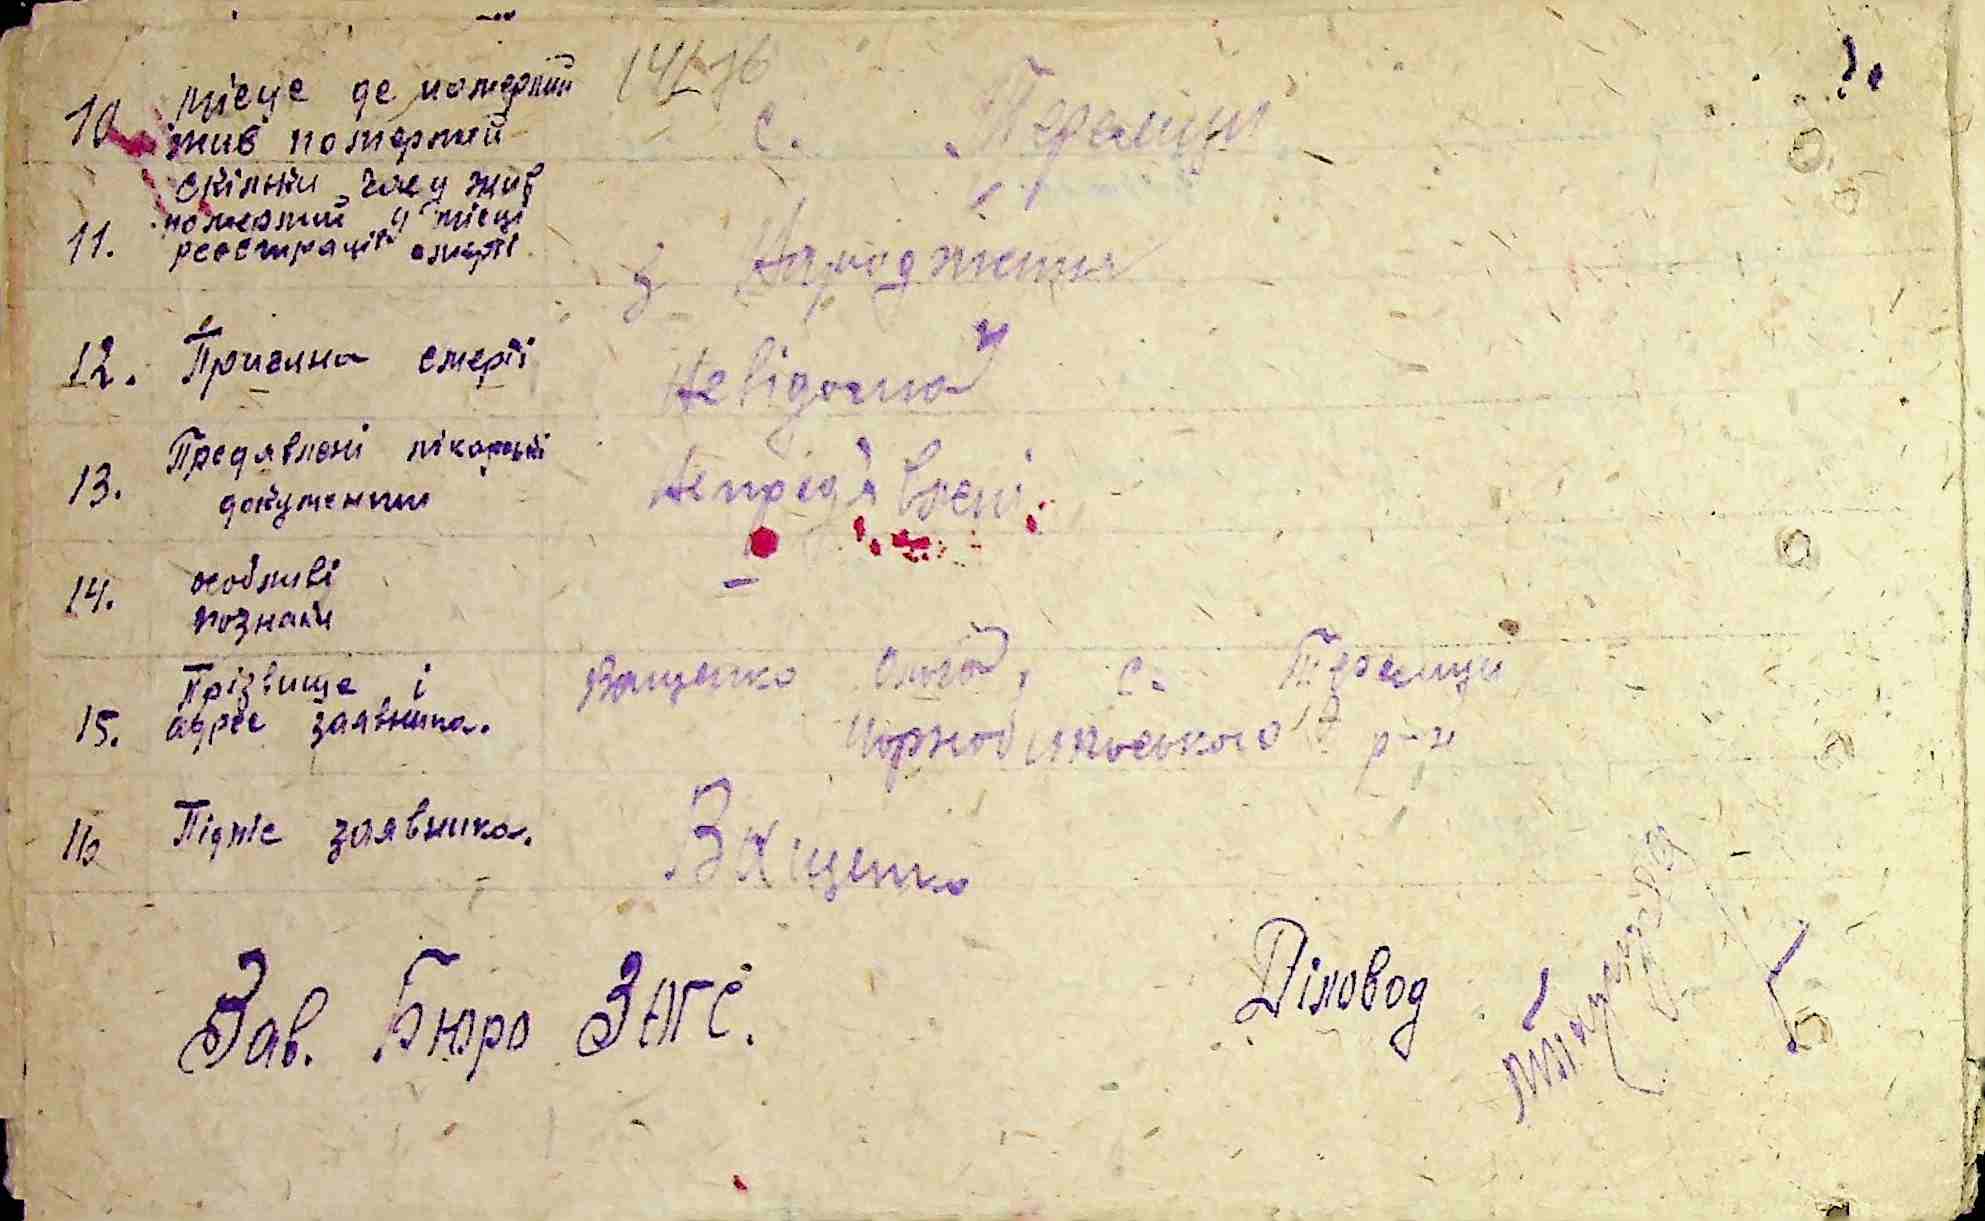 10 місце де померлий
жив померший
с. Теремци
скільки часу жив
11. померлий у місці
реєстрації смерті
з Народження
12. Причина смерті Невідома
13. Предявлені лікарські
документи
Непред'явлені.
14. особливі
познаки
–
15. Прізвище і
адрес заявника.
Ващенко Ольга, с. Теремци
Чорнобильського р-н
16 Підпис заявника. Ващенко
Зав. Бюро ЗАГС. Діловод